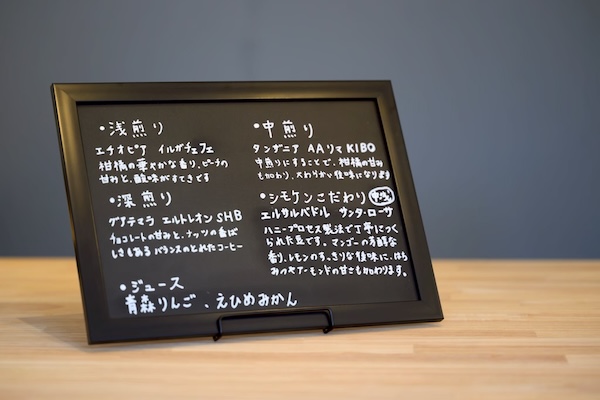 ・浅煎り
エチオピア イルガチェフェ
柑橘の華やかな香り、ピーチの
甘みと、酸味がすてきです
・深煎り
グアテマラ エルトレオン SHB
チョコレートの甘みと、ナッツの香ば
しさもある バランスのとれたコーヒー
・ジュース
青森りんご、えひめみかん
・中煎り
タンザニア AA リマ KIBO
中煎りにすることで、柑橘の甘み
も加わり、やわらかい後味になります
・シモケンこだわり
エルサルバドル サンタ・ローサ
ハニープロセス製法で丁寧につく
られた豆です。マンゴーの芳醇な
香り、レモンのすっきりな後味に、はち
みつやアーモンドの甘さも加わります。